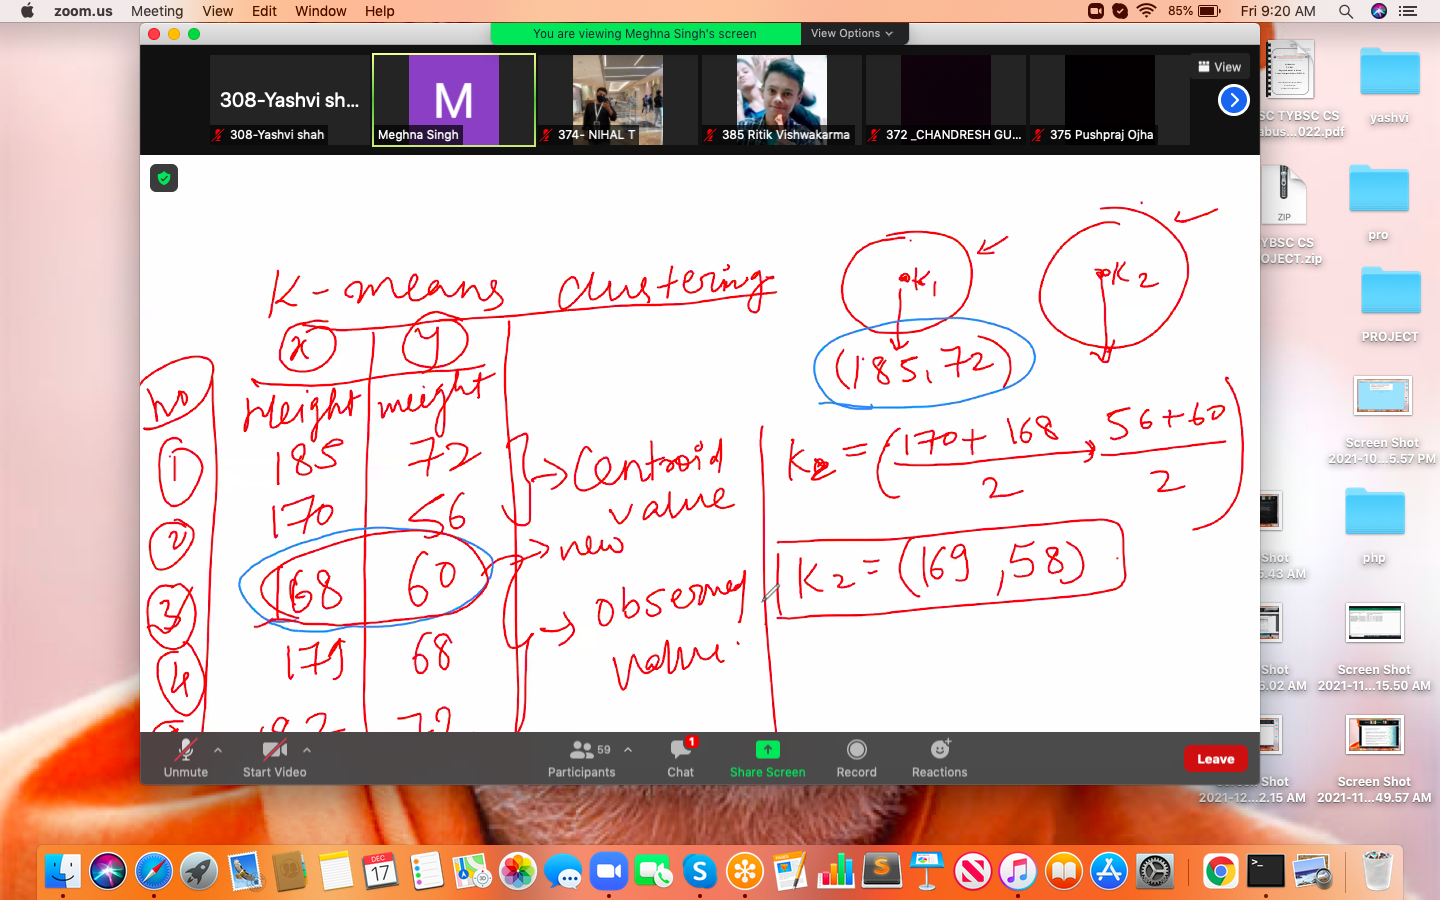 zoom.us Meeting View Edit Window Help
85% Fri 9:20 AM
You are viewing Meghna Singh's screen View Options
View
308-Yashvi sh...
M
308-Yashvi shah
Meghna Singh
374- NIHAL T
385 Ritik Vishwakarma
372 _CHANDRESH GU...
375 Pushpraj Ojha
K-means clustering
x y
No Height weight
1 185 72
2 170 56
3 168 60
4 179 68
centroid
value
new
observed
value.
K1
K2
(185,72)
K2 = (170+168/2, 56+60/2)
K2 = (169,58)
Unmute
Start Video
59
Participants
1
Chat
Share Screen
Record
Reactions
Leave
SC TYBSC CS
abus...022.pdf
yashvi
ZIP
YBSC CS
OJECT.zip
pro
PROJECT
Screen Shot
2021-10...5.57 PM
Shot
5.43 AM
php
Shot
6.02 AM
Screen Shot
2021-11...15.50 AM
Shot
2021-12...2.15 AM
Screen Shot
2021-11...49.57 AM
DEC
17